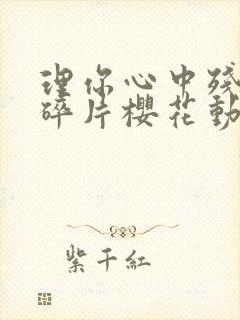 理你心中殘
碎片櫻花動
紫千紅